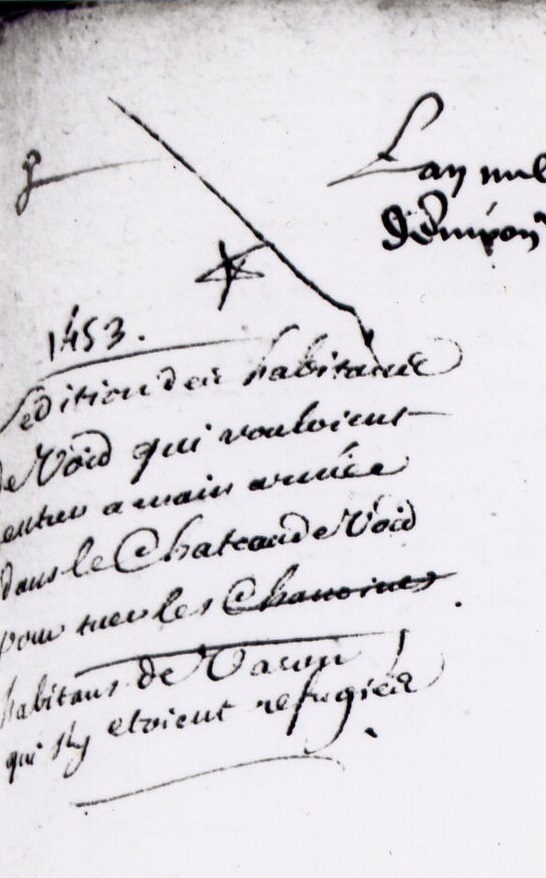 Lan mil
1453.
Sedition des habitans
de Void qui vouloient
entrer a main armée
dans le Chateau de Void
pour tuer les Chanoines
habitans de Vacon
qui s'y etoient refugiés